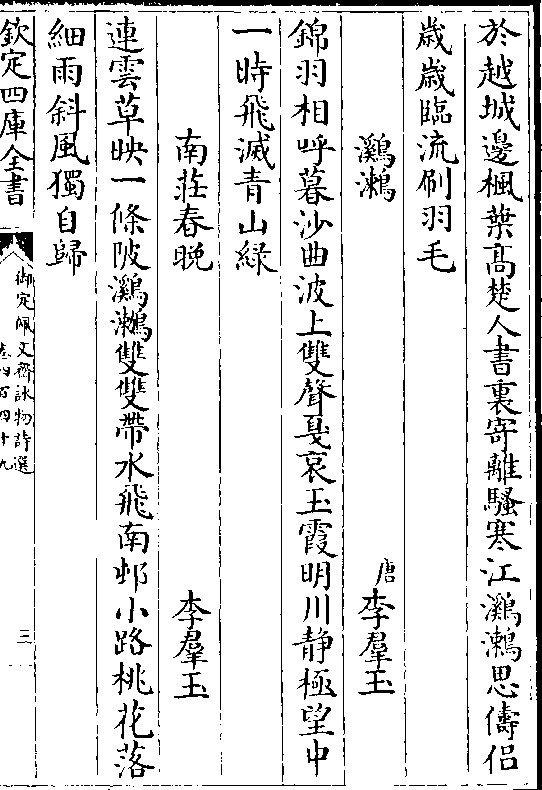 於越城邊楓葉髙楚人書裏寄離騷寒江鸂𪆟思儔侣
歳歳臨流刷羽毛
鸂𪆟
唐李羣玉
錦羽相呼暮沙曲波上雙聲戛哀玉霞明川静極望中
一時飛滅青山緑
南莊春晚
李羣玉
連雲草映一條陂鸂𪆟雙雙帶水飛南邨小路桃花落
細雨斜風獨自歸
欽定四庫全書
御定佩文齋詠物詩選
卷四百四十九
三